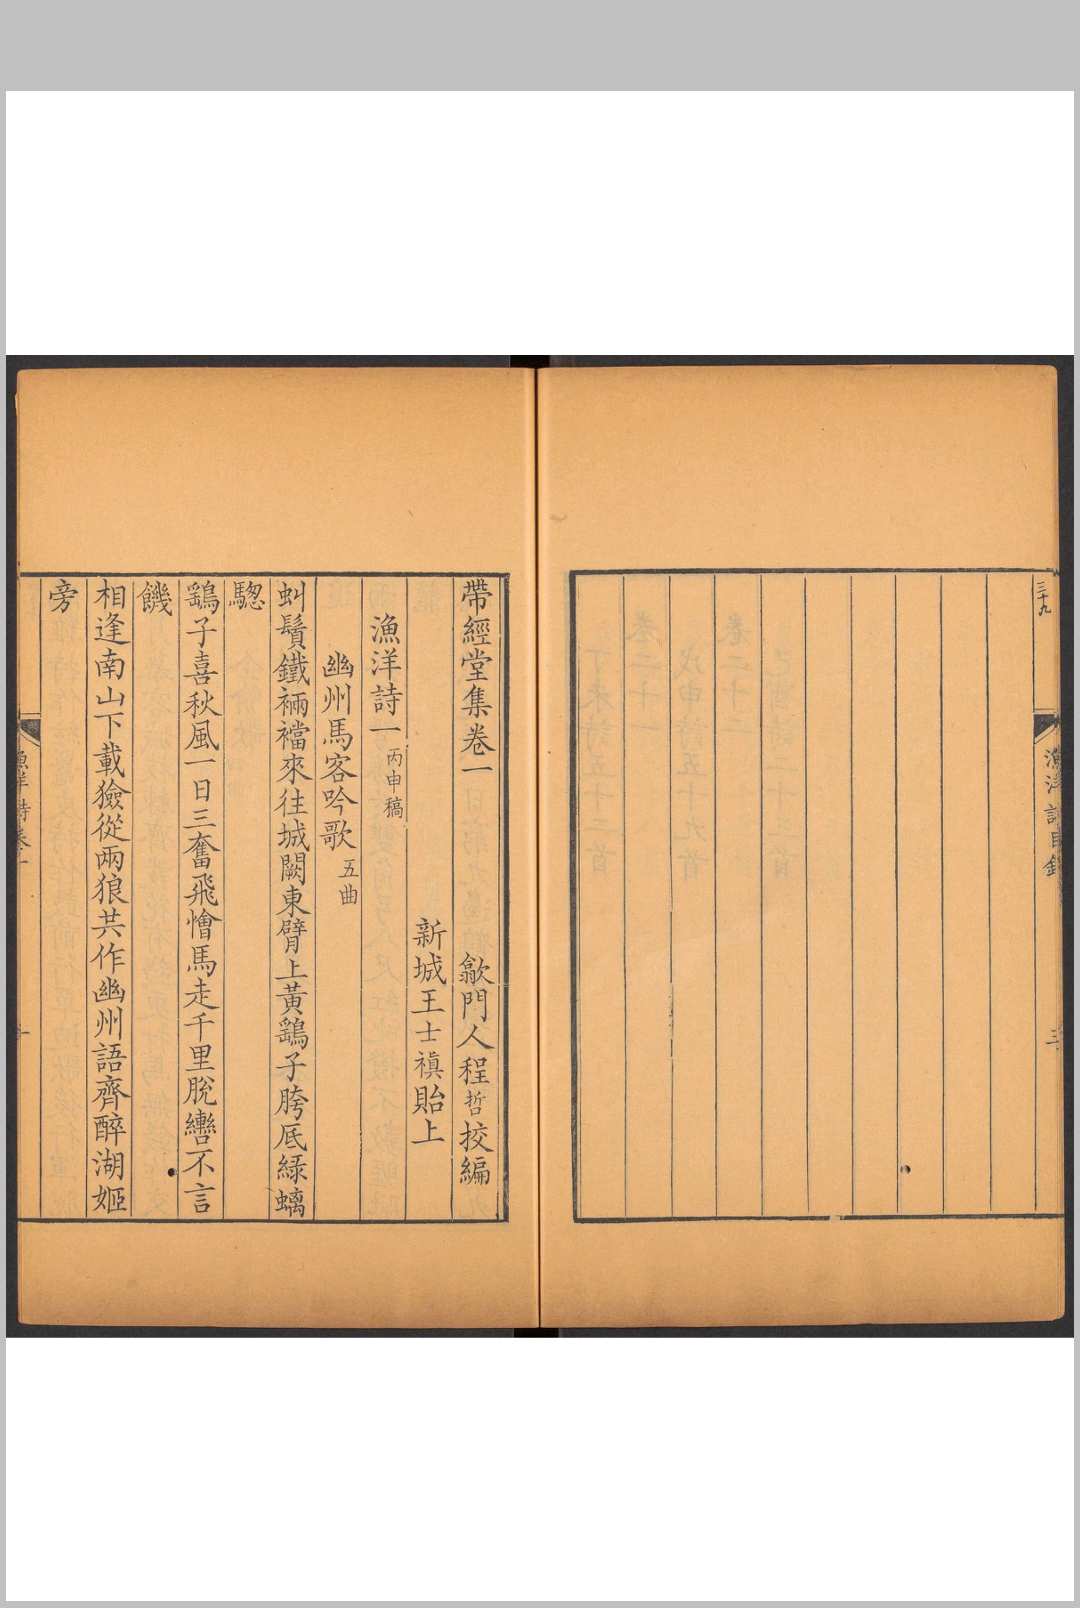 三十九
漁洋詩目錄
三
帶經堂集卷一
歙門人程哲挍編
新城王士禛貽上
漁洋詩一 丙申稿
幽州馬客吟歌 五曲
虯鬚鐵裲襠來往城闕東臂上黃鷂子胯底綠螭
驄
鷂子喜秋風一日三奮飛懀馬走千里脫轡不言
饑
相逢南山下載獫從兩狼共作幽州語齊醉湖姬
旁
漁洋詩卷一